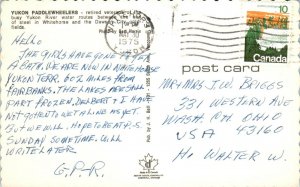 YUKON PADDLEWHEELERS - retired veterans of the
busy Yukon River water routes between the
of steel in Whitehorse and the Dawson
fields
HELLO
THE GIRLS HAVE GONE AFTER
A BATH. WE ARE NOW IN WHITEHORSE
YUKON TERR. 602 MILES FROM
FAIRBANKS. THE LAKES ARE STILL
PART FROZEN. DELBERT & I HAVE
NOT GOT INTO WETA LINE AS YET.
BUT WE WILL. HOPE TO BE AT P.S.
SUNDAY SOMETIME. WILL
WRITE LATER
G.P.R.
PM
1975
10
Canada
post card
MR & MRS J.W. BRIGGS
331 WESTERN AVE
WASH. C.H. OHIO
USA 43160
HI WALTER W.